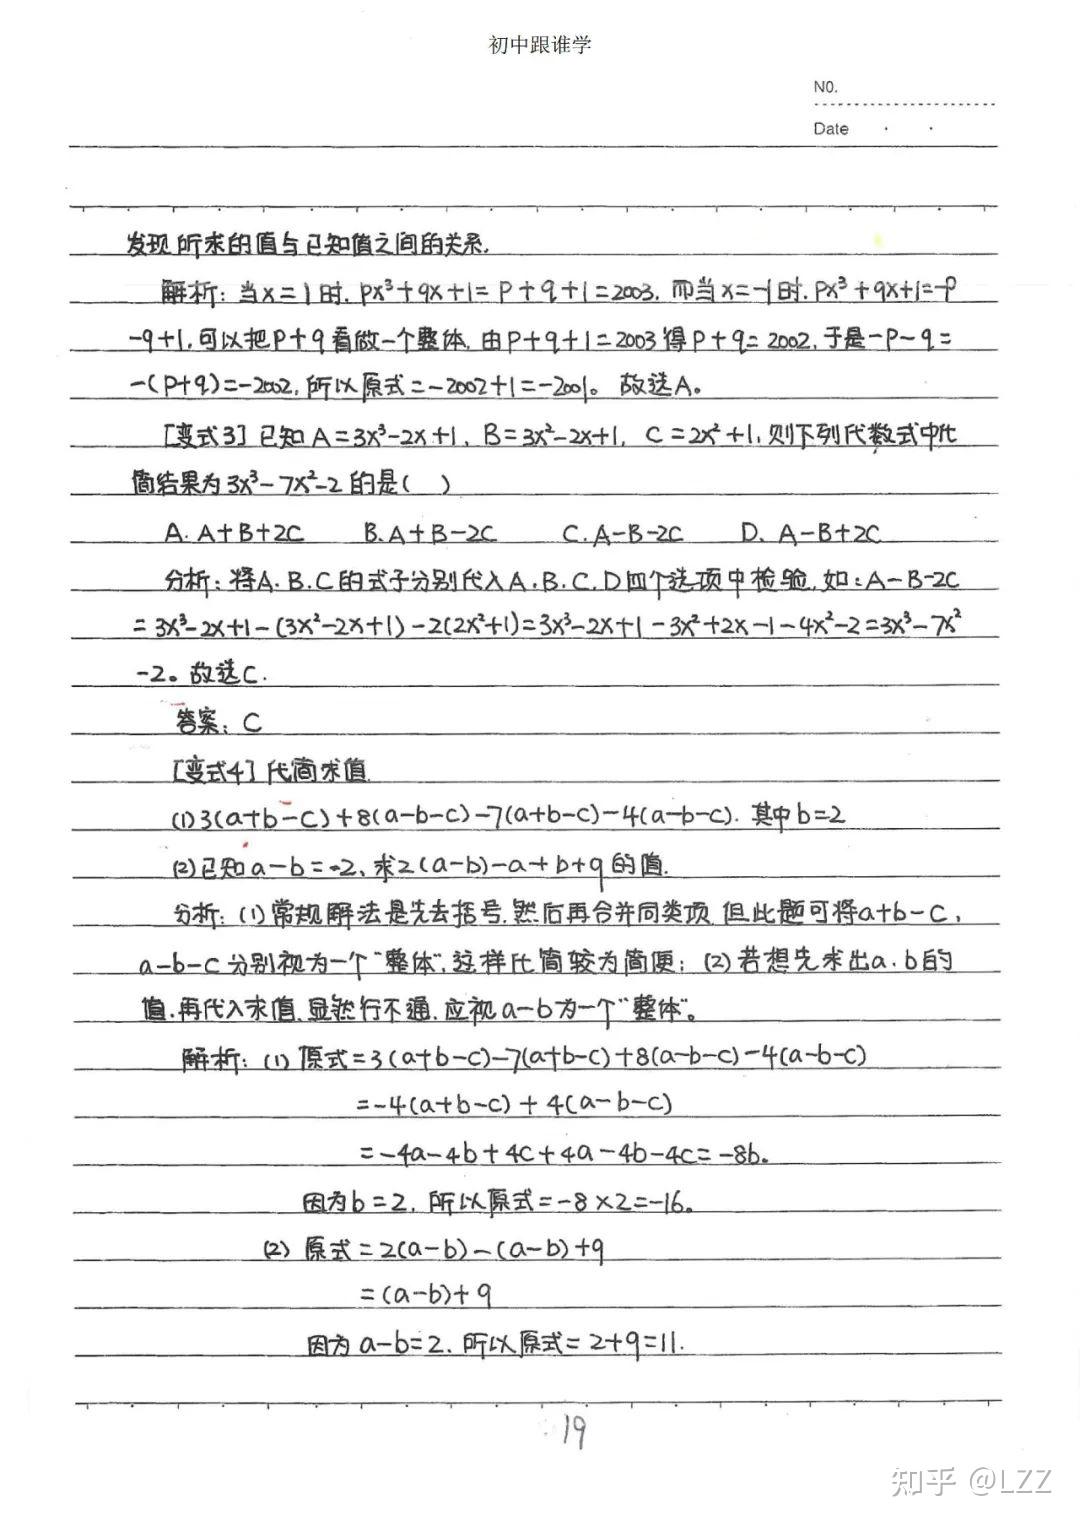 初中跟谁学
NO.
Date . .
发现所求的值与已知值之间的关系.
解析:当x=1时.px³+qx+1=P+q+1=2003.而当x=-1时.px³+qx+1=-P
-q+1,可以把P+q看做一个整体.由P+q+1=2003得P+q=2002,于是-P-q=
-(P+q)=-2002,所以原式=-2002+1=-2001。故选A。
[变式3]已知A=3x³-2x+1,B=3x²-2x+1,C=2x²+1,则下列代数式中化
简结果为3x³-7x²-2的是( )
A.A+B+2C B.A+B-2C C.A-B-2C D.A-B+2C
分析:将A.B.C的式子分别代入A.B.C.D四个选项中检验.如:A-B-2C
=3x³-2x+1-(3x²-2x+1)-2(2x²+1)=3x³-2x+1-3x²+2x-1-4x²-2=3x³-7x²
-2。故选C.
答案:C
[变式4]代简求值
(1)3(a+b-c)+8(a-b-c)-7(a+b-c)-4(a-b-c).其中b=2
(2)已知a-b=-2,求2(a-b)-a+b+9的值.
分析:(1)常规解法是先去括号.然后再合并同类项.但此题可将a+b-c,
a-b-c分别视为一个"整体",这样化简较为简便;(2)若想先求出a.b的
值.再代入求值.显然行不通.应视a-b为一个"整体"。
解析:(1)原式=3(a+b-c)-7(a+b-c)+8(a-b-c)-4(a-b-c)
=-4(a+b-c)+4(a-b-c)
=-4a-4b+4c+4a-4b-4c=-8b。
因为b=2,所以原式=-8×2=-16。
(2)原式=2(a-b)-(a-b)+9
=(a-b)+9
因为a-b=2.所以原式=2+9=11.
19
知乎 @LZZ